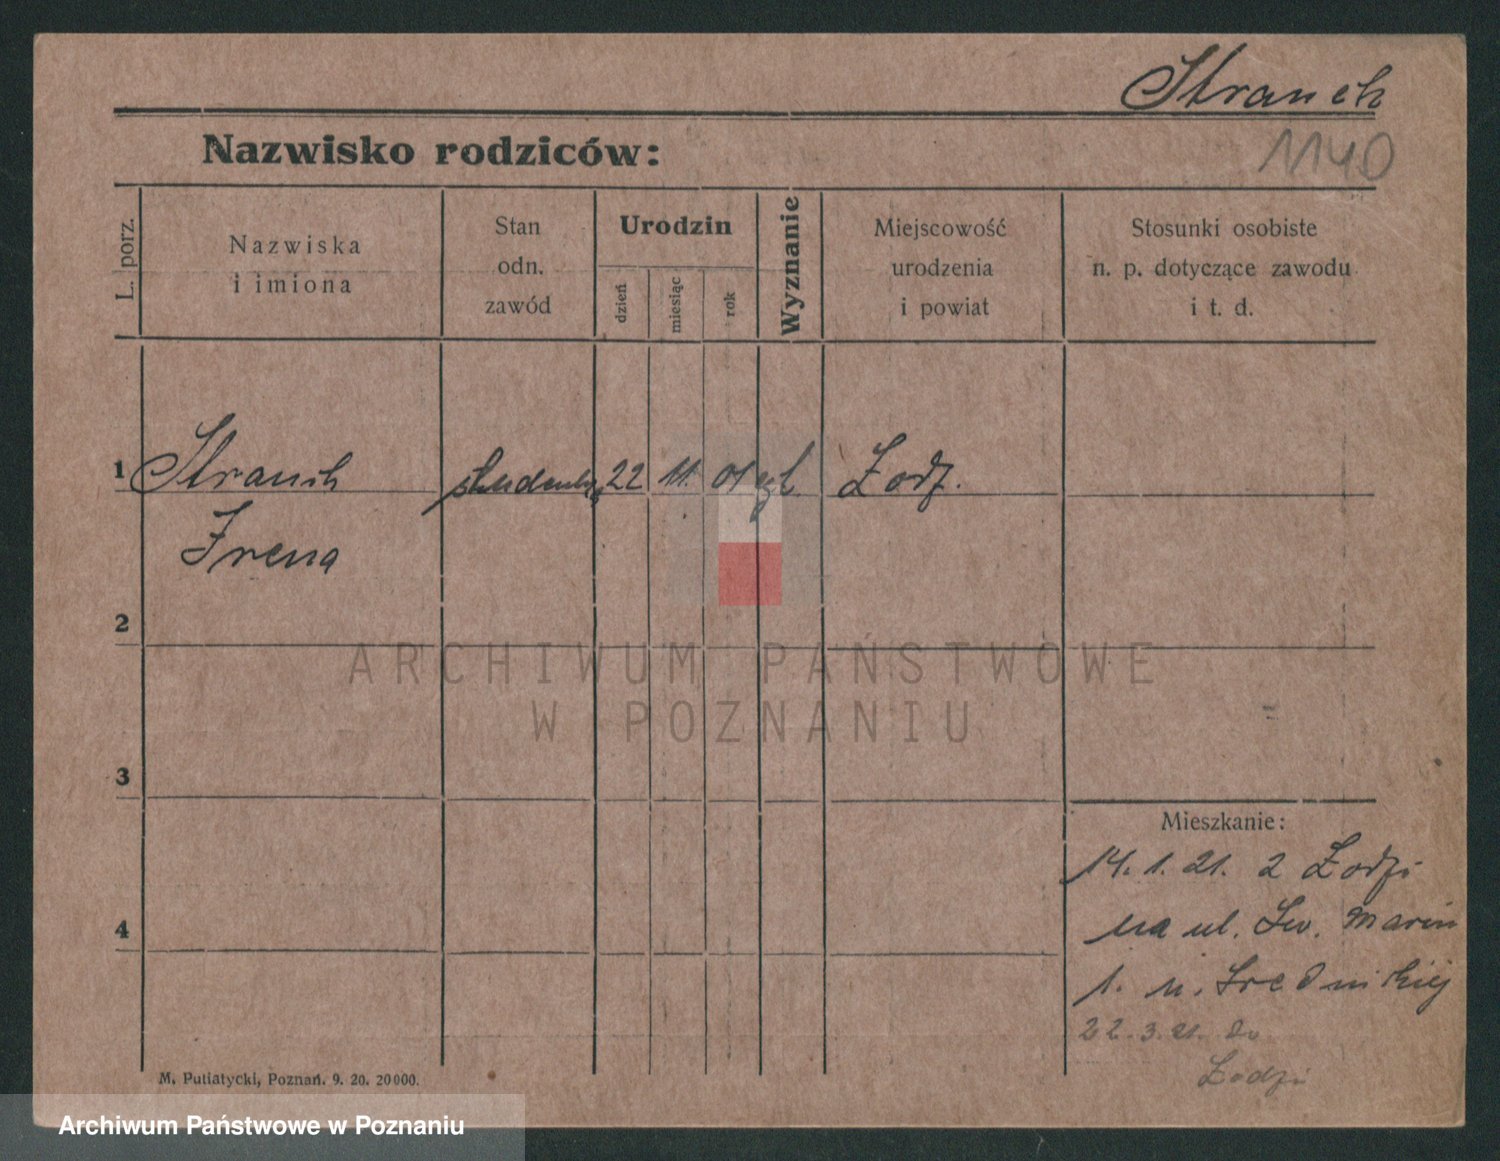 Strauch
1140
Nazwisko rodziców:
L. porz.
Nazwiska
i imiona
Stan
odn.
zawód
Urodzin
dzień
miesiąc
rok
Wyznanie
Miejscowość
urodzenia
i powiat
Stosunki osobiste
n. p. dotyczące zawodu
i t. d.
1
Strauch
Irena
studentka
22
11.
01
Łodz.
2
ARCHIWUM PAŃSTWOWE
W POZNANIU
3
4
Mieszkanie:
14. 1. 21. z Łodzi
na ul. Św. Marcin
1. u. Średnickiej
22. 3. 21. do
Łodzi
M. Putiatycki, Poznań. 9. 20. 20000.
Archiwum Państwowe w Poznaniu